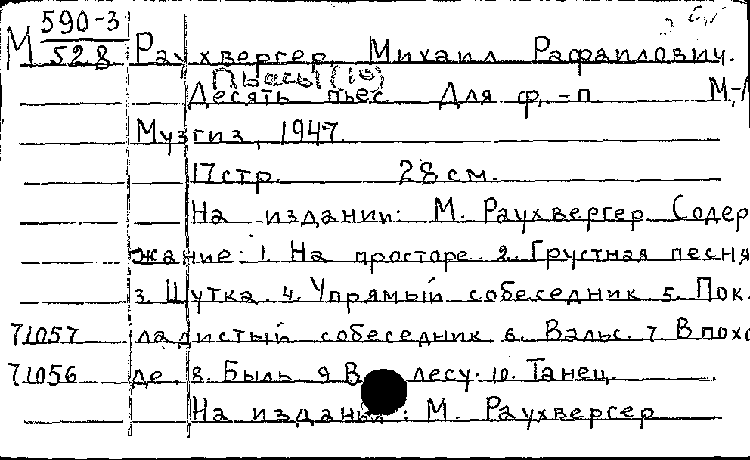 М 590-3
528
Раухвергер, Михаил Рафаилович.
Пьесы (10)
Десять пьес Для ф.=п М,-Л
Музгиз, 1947.
17 стр. 28 см.
На издании: М. Раухвергер. Содер
жание: 1. На просторе. 2. Грустная песня
3. Шутка. 4. Упрямый собеседник 5. Пок.
71057 ладистый собеседник 6. Вальс. 7 В похо
71056 де. 8. Быль 9 В лесу. 10. Танец.
На издании: М. Раухвергер